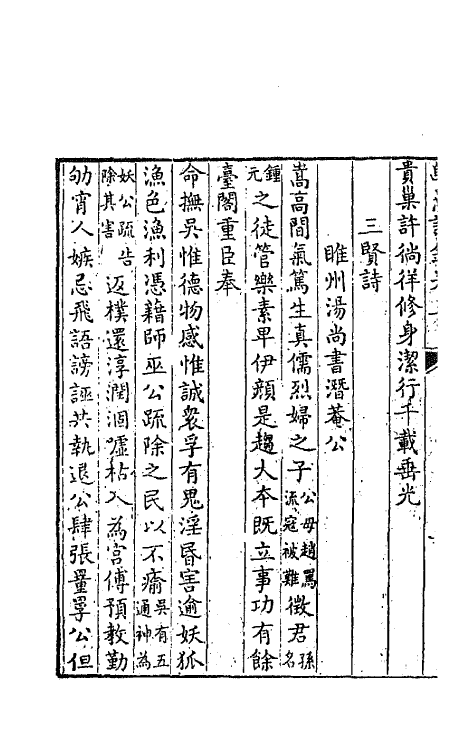 貴巢許徜徉修身潔行千載垂光
三賢詩
睢州湯尚書潛菴公
嵩高間氣篤生真儒烈婦之子公母趙罵流寇被難徵君孫名
鍾元之徒管樂素卑伊顏是趨大本既立事功有餘
臺閣重臣奉
命撫吳惟德物感惟誠衆孚有鬼淫昬害逾妖狐
漁色漁利憑藉師巫公疏除之民以不痡吳有五通神為
妖公疏告除其害返樸還淳潤涸噓枯入為宮傅預教勤
劬宵人嫉忌飛語謗誣共執退公肆張畺罦公但